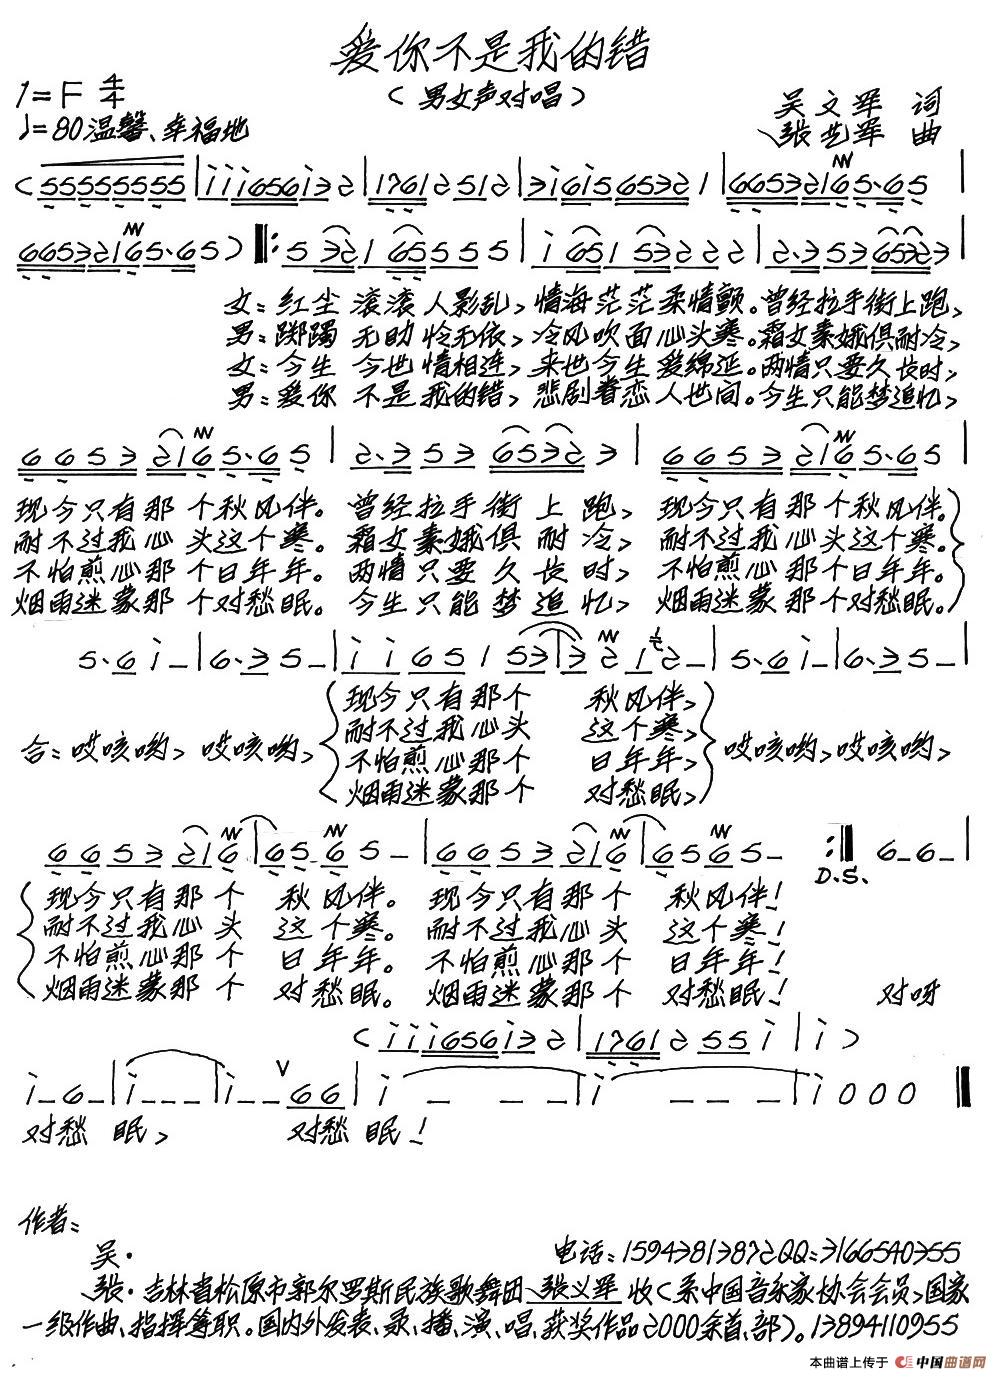 爱你不是我的错
1=F 4/4
(男女声对唱)
吴文军 词
♩=80 温馨、幸福地
张艺军 曲
(55555555 | iii656i32 | 1761 2 512 | 3i6i5 65321 | 6653216 5·65 |
6653216 5·65) ‖: 5 321 65555 | i 651 53222 | 2·353 65323 |
女:红尘 滚滚 人影乱, 情海茫茫柔情颤。曾经拉手街上跑,
男:踯躅 无助 怜无依, 冷风吹面心头寒。霜女素娥俱耐冷,
女:今生 今世 情相连, 来世今生爱绵延。两情只要久长时,
男:爱你 不是 我的错, 悲剧眷恋人世间。今生只能梦追忆,
6653 216 5·65 | 2·353 6532 3 | 6653 216 5·65 |
现今只有那 个秋风伴。 曾经拉手街上跑, 现今只有那个秋风伴。
耐不过我心 头这个寒。 霜女素娥俱耐冷, 耐不过我心头这个寒。
不怕煎心那 个日年年。 两情只要久长时, 不怕煎心那个日年年。
烟雨迷蒙那 个对愁眠。 今生只能梦追忆, 烟雨迷蒙那个对愁眠。
5·6 i – | 6·3 5 – | i i 6 5 1 53 | 3 2 1 2 – | 5·6 i – | 6·3 5 – |
现今只有那个 秋风伴,
耐不过我心头 这个寒,
合:哎咳哟, 哎咳哟, 不怕煎心那个 日年年, 哎咳哟,哎咳哟,
烟雨迷蒙那个 对愁眠,
6653 216 | 65 6 5 – | 6653 216 | 6565 – :‖ 6–6– |
D.S.
现今只有那个 秋风伴。 现今只有那个 秋风伴!
耐不过我心头 这个寒。 耐不过我心头 这个寒!
不怕煎心那个 日年年。 不怕煎心那个 日年年!
烟雨迷蒙那个 对愁眠。 烟雨迷蒙那个 对愁眠! 对呀
(iii656i32 | 1761 2 55 i | i)
i–6– | i––– | i––66 | i ––– | i ––– | i000 ‖
对愁 眠, 对愁 眠!
作者:
吴· 电话:15943813872QQ:3166540355
张·吉林省松原市郭尔罗斯民族歌舞团、张义军 收(系中国音乐家协会会员,国家
一级作曲、指挥等职。国内外发表、录、播、演、唱、获奖作品2000余首、部)。13894110955
本曲谱上传于 中国曲谱网